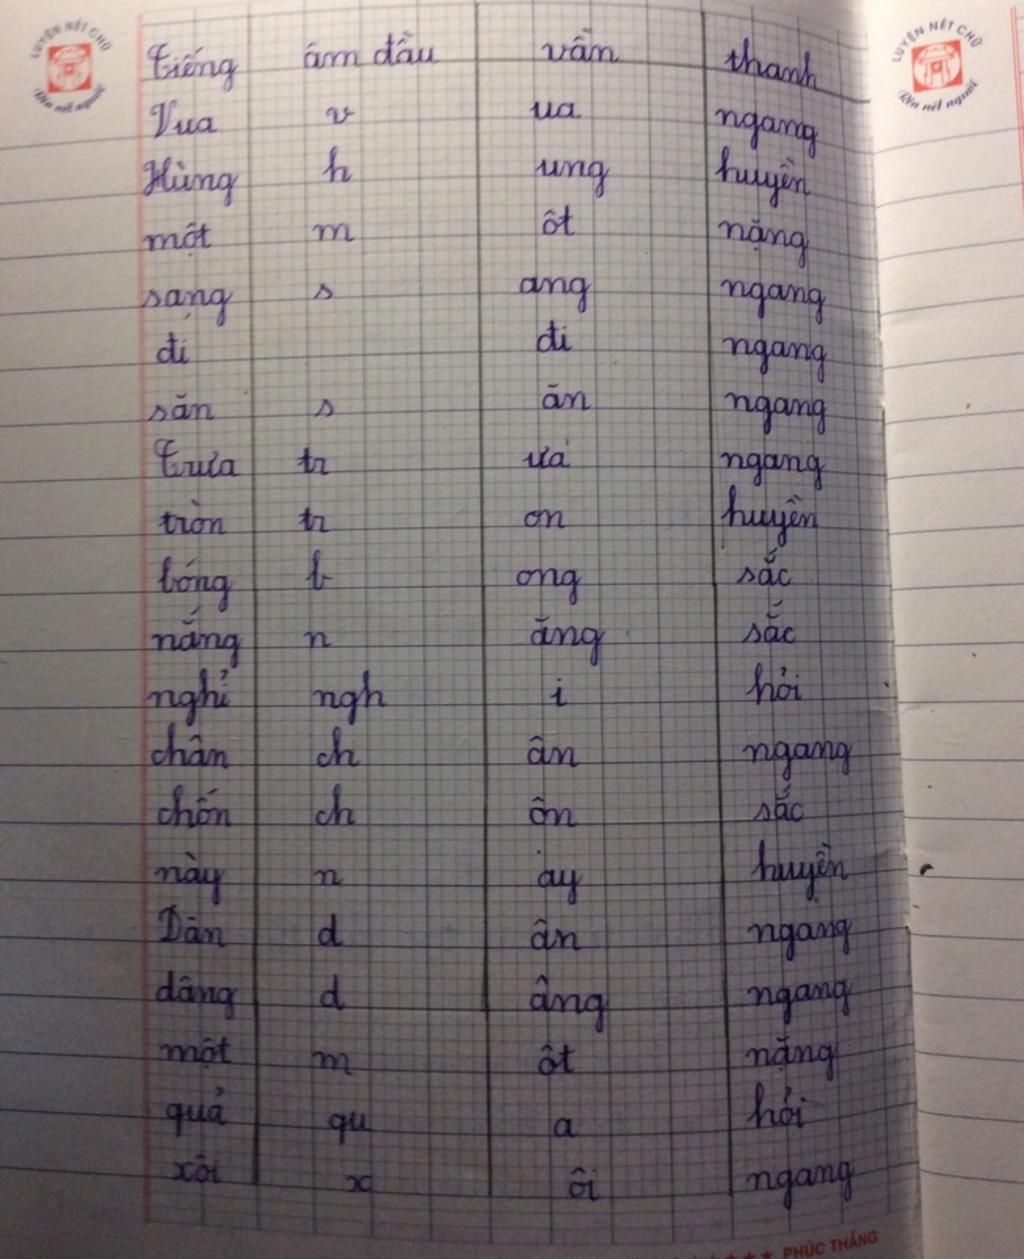 LUYỆN NÉT CHỮ
Rèn nết người
LUYỆN NÉT CHỮ
Rèn nết người
Tiếng âm đầu vần thanh
Vua v ua ngang
Hùng h ung huyền
một m ôt nặng
sang s ang ngang
đi đi ngang
săn s ăn ngang
Trưa tr ưa ngang
tròn tr on huyền
bóng b ong sắc
nắng n ăng sắc
nghỉ ngh i hỏi
chân ch ân ngang
chốn ch ôn sắc
này n ay huyền
Dân d ân ngang
dâng d âng ngang
một m ôt nặng
quả qu a hỏi
xôi x ôi ngang
★ ★ PHÚC THẮNG